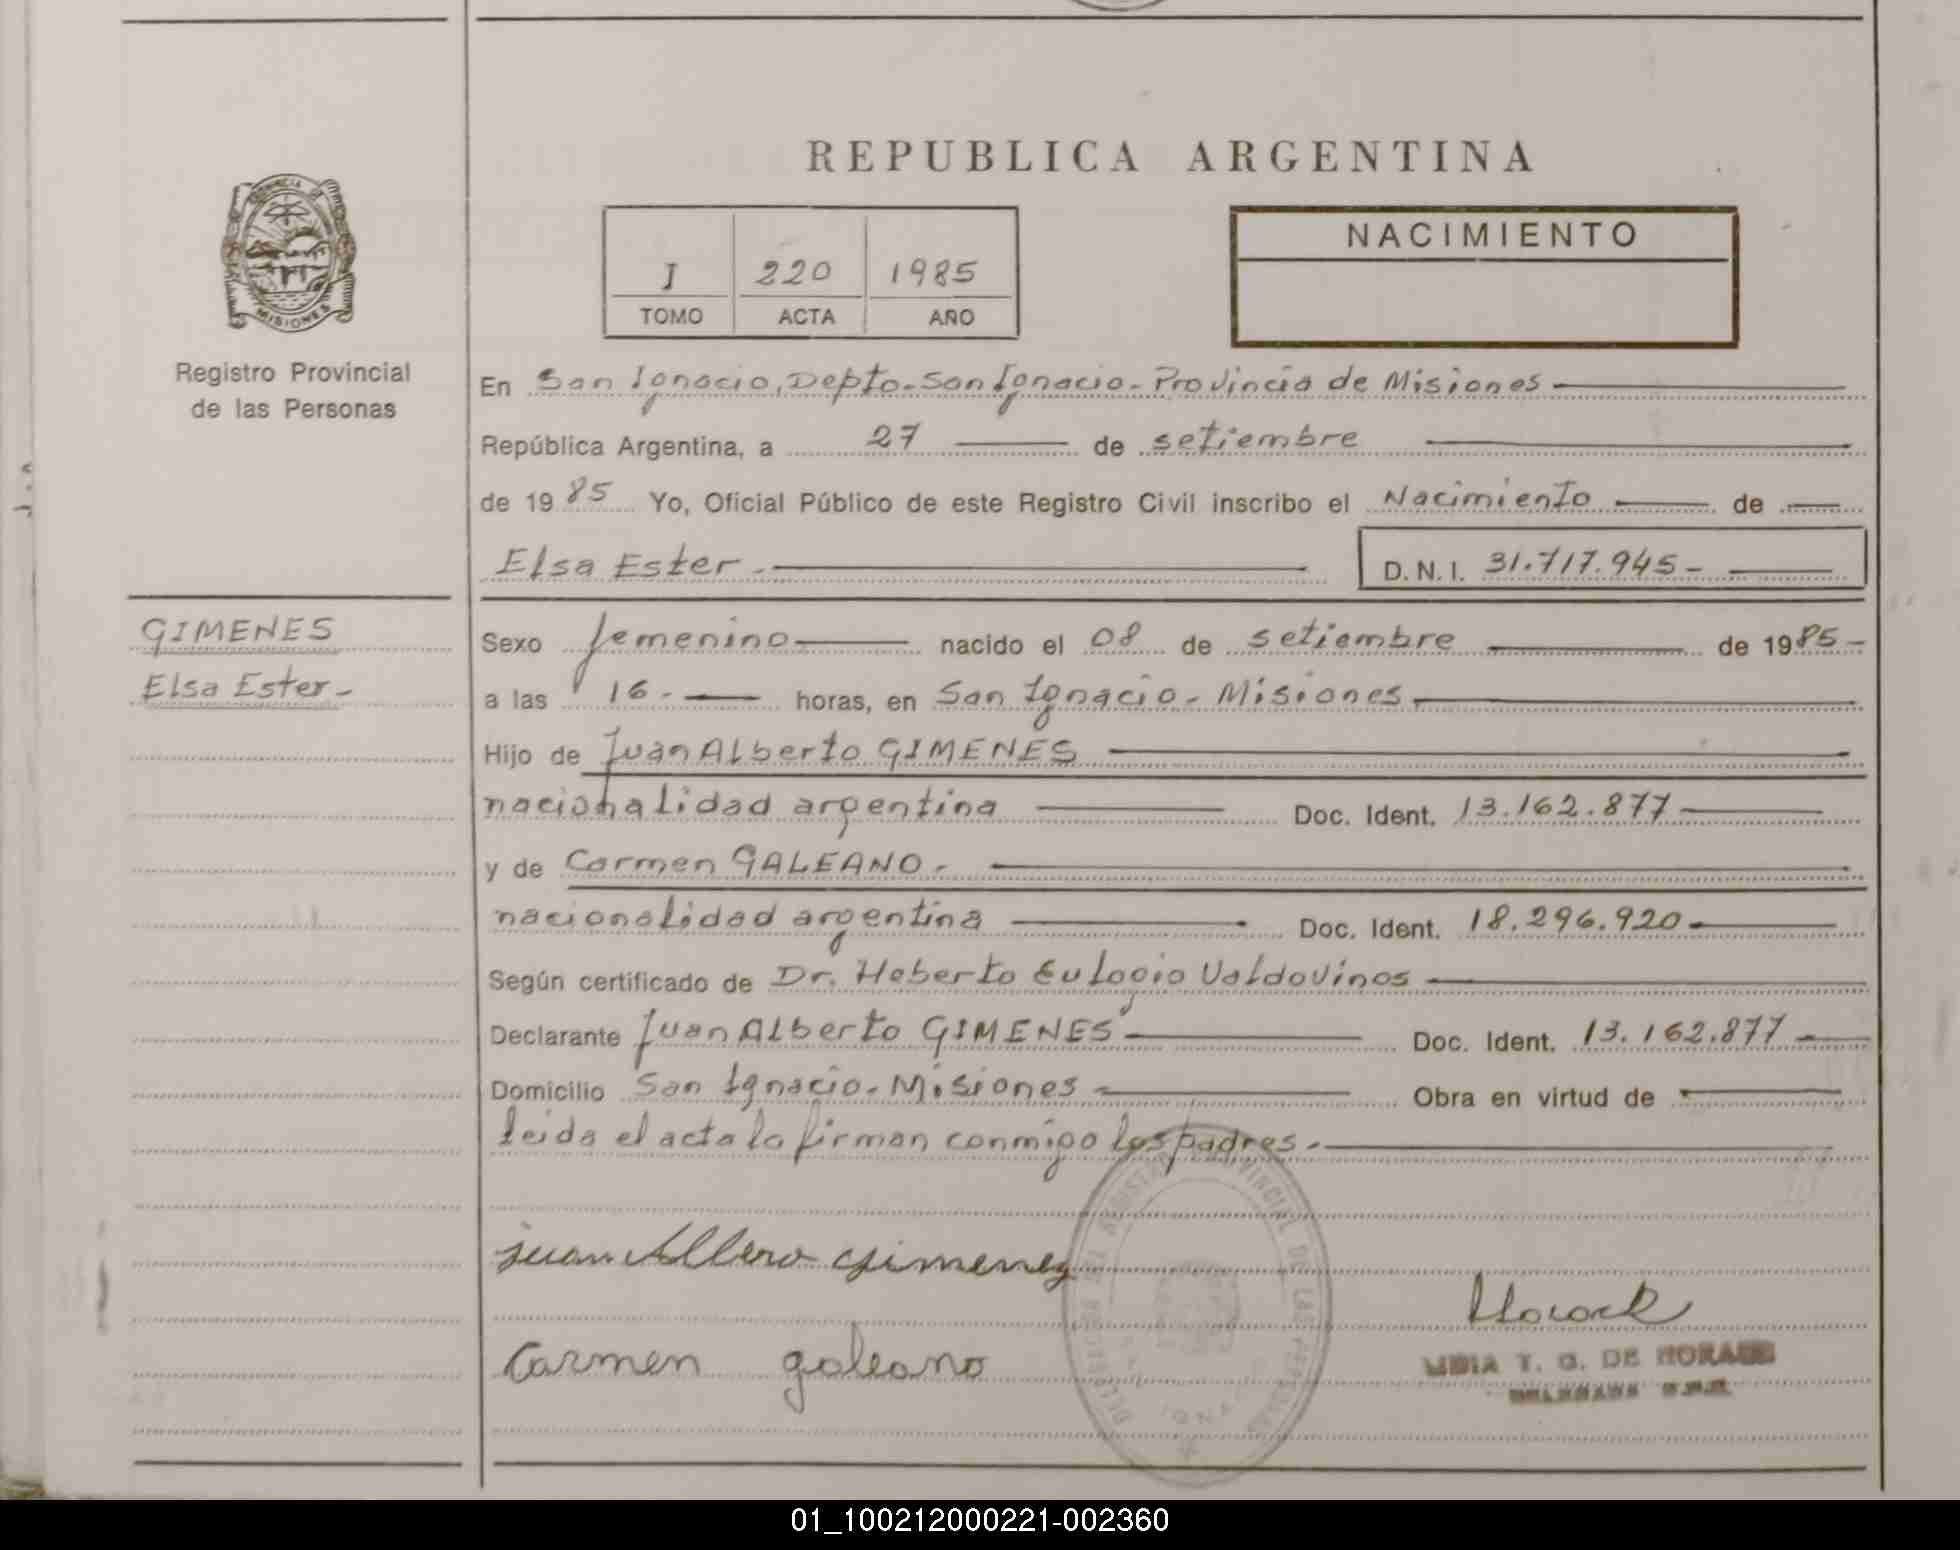 REPUBLICA ARGENTINA
PROVINCIA DE
MISIONES
Registro Provincial
de las Personas
I 220 1985
TOMO ACTA AÑO
NACIMIENTO
En San Ignacio, Depto. San Ignacio - Provincia de Misiones
República Argentina, a 27 de setiembre
de 1985 Yo, Oficial Público de este Registro Civil inscribo el Nacimiento de
Elsa Ester - D.N.I. 31.717.945-
GIMENES
Elsa Ester -
Sexo femenino nacido el 08 de setiembre de 1985-
a las 16.- horas, en San Ignacio - Misiones
Hijo de Juan Alberto GIMENES
nacionalidad argentina Doc. Ident. 13.162.877
y de Carmen GALEANO.
nacionalidad argentina Doc. Ident. 18.296.920
Según certificado de Dr. Heberto Eulogio Valdovinos
Declarante Juan Alberto GIMENES Doc. Ident. 13.162.877
Domicilio San Ignacio - Misiones Obra en virtud de
leida el acta la firman conmigo los padres.
juan Albero gimenez
Carmen galeano
T. G. DE MORAES
01_100212000221-002360